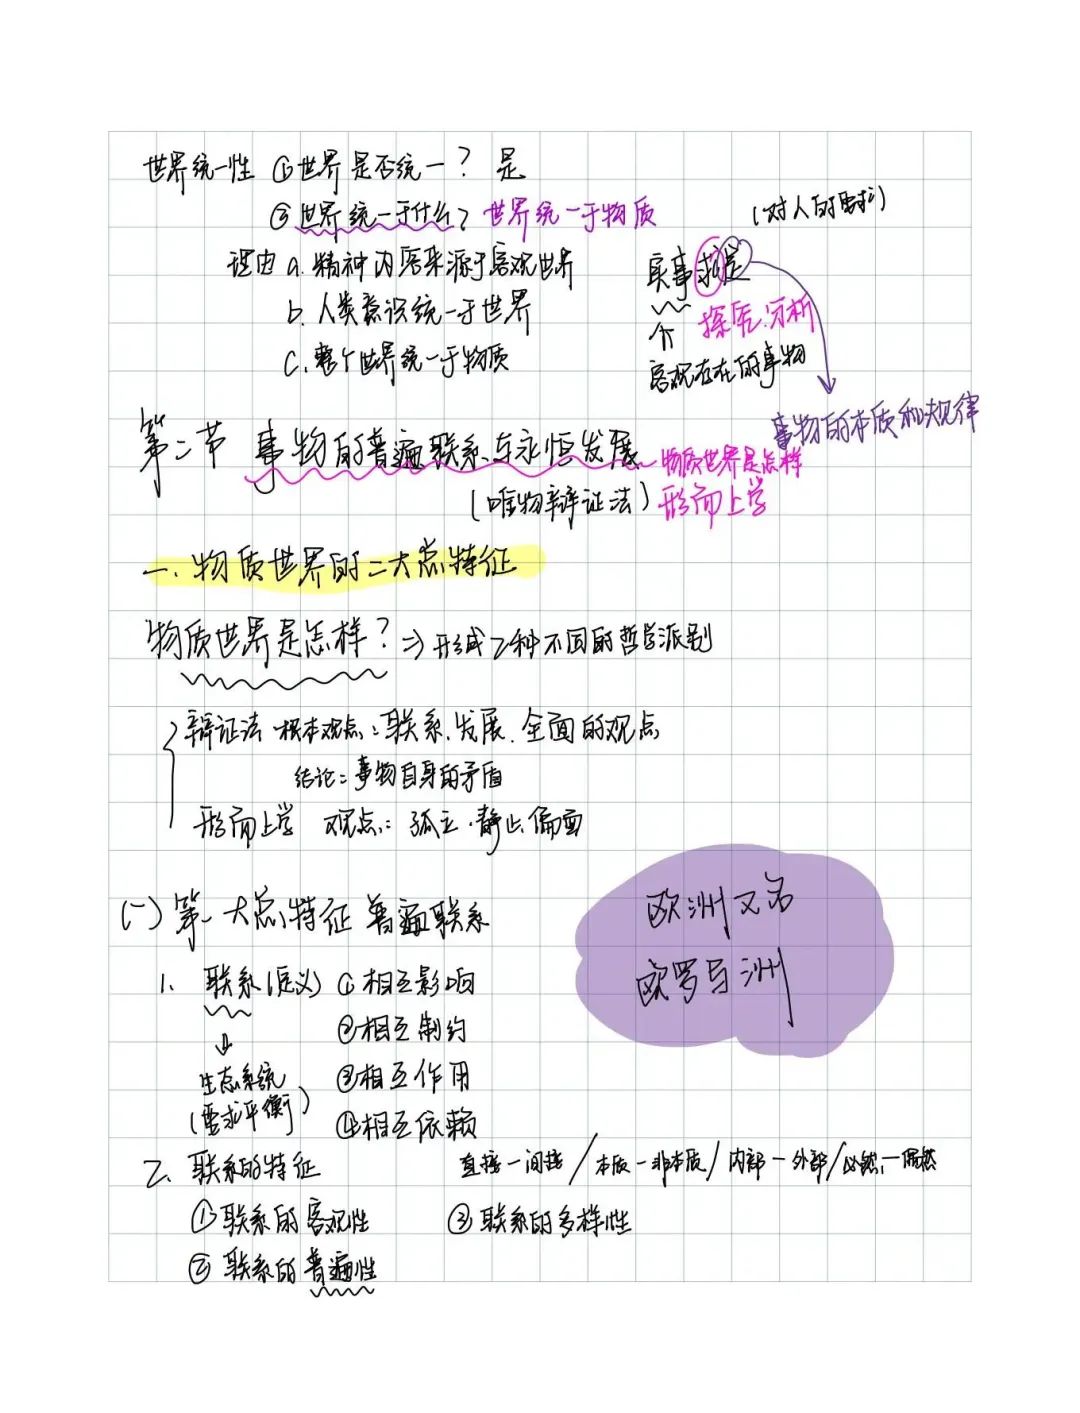 世界统一性 ①世界是否统一? 是
②世界统一于什么? 世界统一于物质
(对人的要求)
理由 a.精神内容来源于客观世界
实事求是
b.人类意识统一于世界
探究.分析
c.整个世界统一于物质
客观存在的事物
事物的本质和规律
第二节 事物的普遍联系与永恒发展
物质世界是怎样
(唯物辩证法) 形而上学
一.物质世界的二大点特征
物质世界是怎样? ⇒形成2种不同的哲学派别
辩证法 根本观点:联系.发展.全面的观点
结论:事物自身的矛盾
形而上学 观点: 孤立.静止.偏面
(一)第一大点特征 普遍联系
欧洲又名
欧罗马洲
1. 联系(定义) ①相互影响
②相互制约
生态系统 ③相互作用
(要求平衡) ④相互依赖
2. 联系的特征 直接一间接/本质一非本质/内部一外部/必然一偶然
①联系的客观性 ③联系的多样性
②联系的普遍性